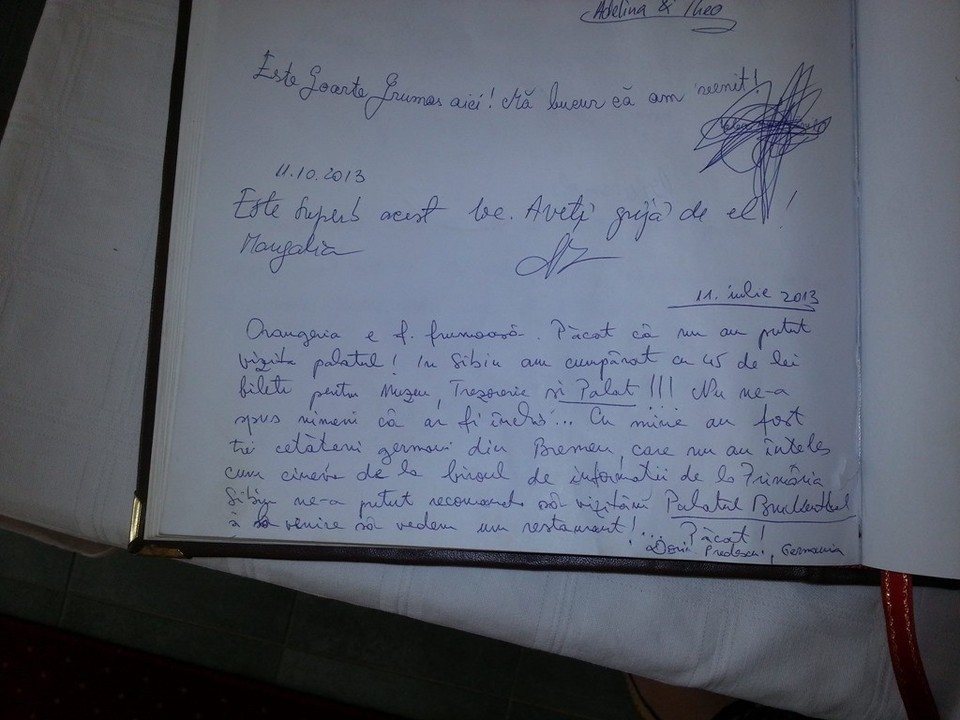 Adelina & Theo
Este foarte frumos aici! Mă bucur că am venit!
11.10.2013
Este superb acest loc. Aveți grijă de el!
Mangalia
11. iulie 2013
Orangeria e f. frumoasă. Păcat că nu am putut
vizita palatul! In Sibiu am cumpărat cu 45 de lei
bilete pentru Muzeu, Trezorerie și Palat!!! Nu ne-a
spus nimeni că ar fi închis... Cu mine au fost
trei cetățeni germani din Bremen, care nu au înteles
cum cineva de la biroul de informatii de la Primăria
Sibiu ne-a putut recomanda să vizităm Palatul Bruckenthal
să venire să vedem un restaurant!... Păcat!
Predescu, Germania